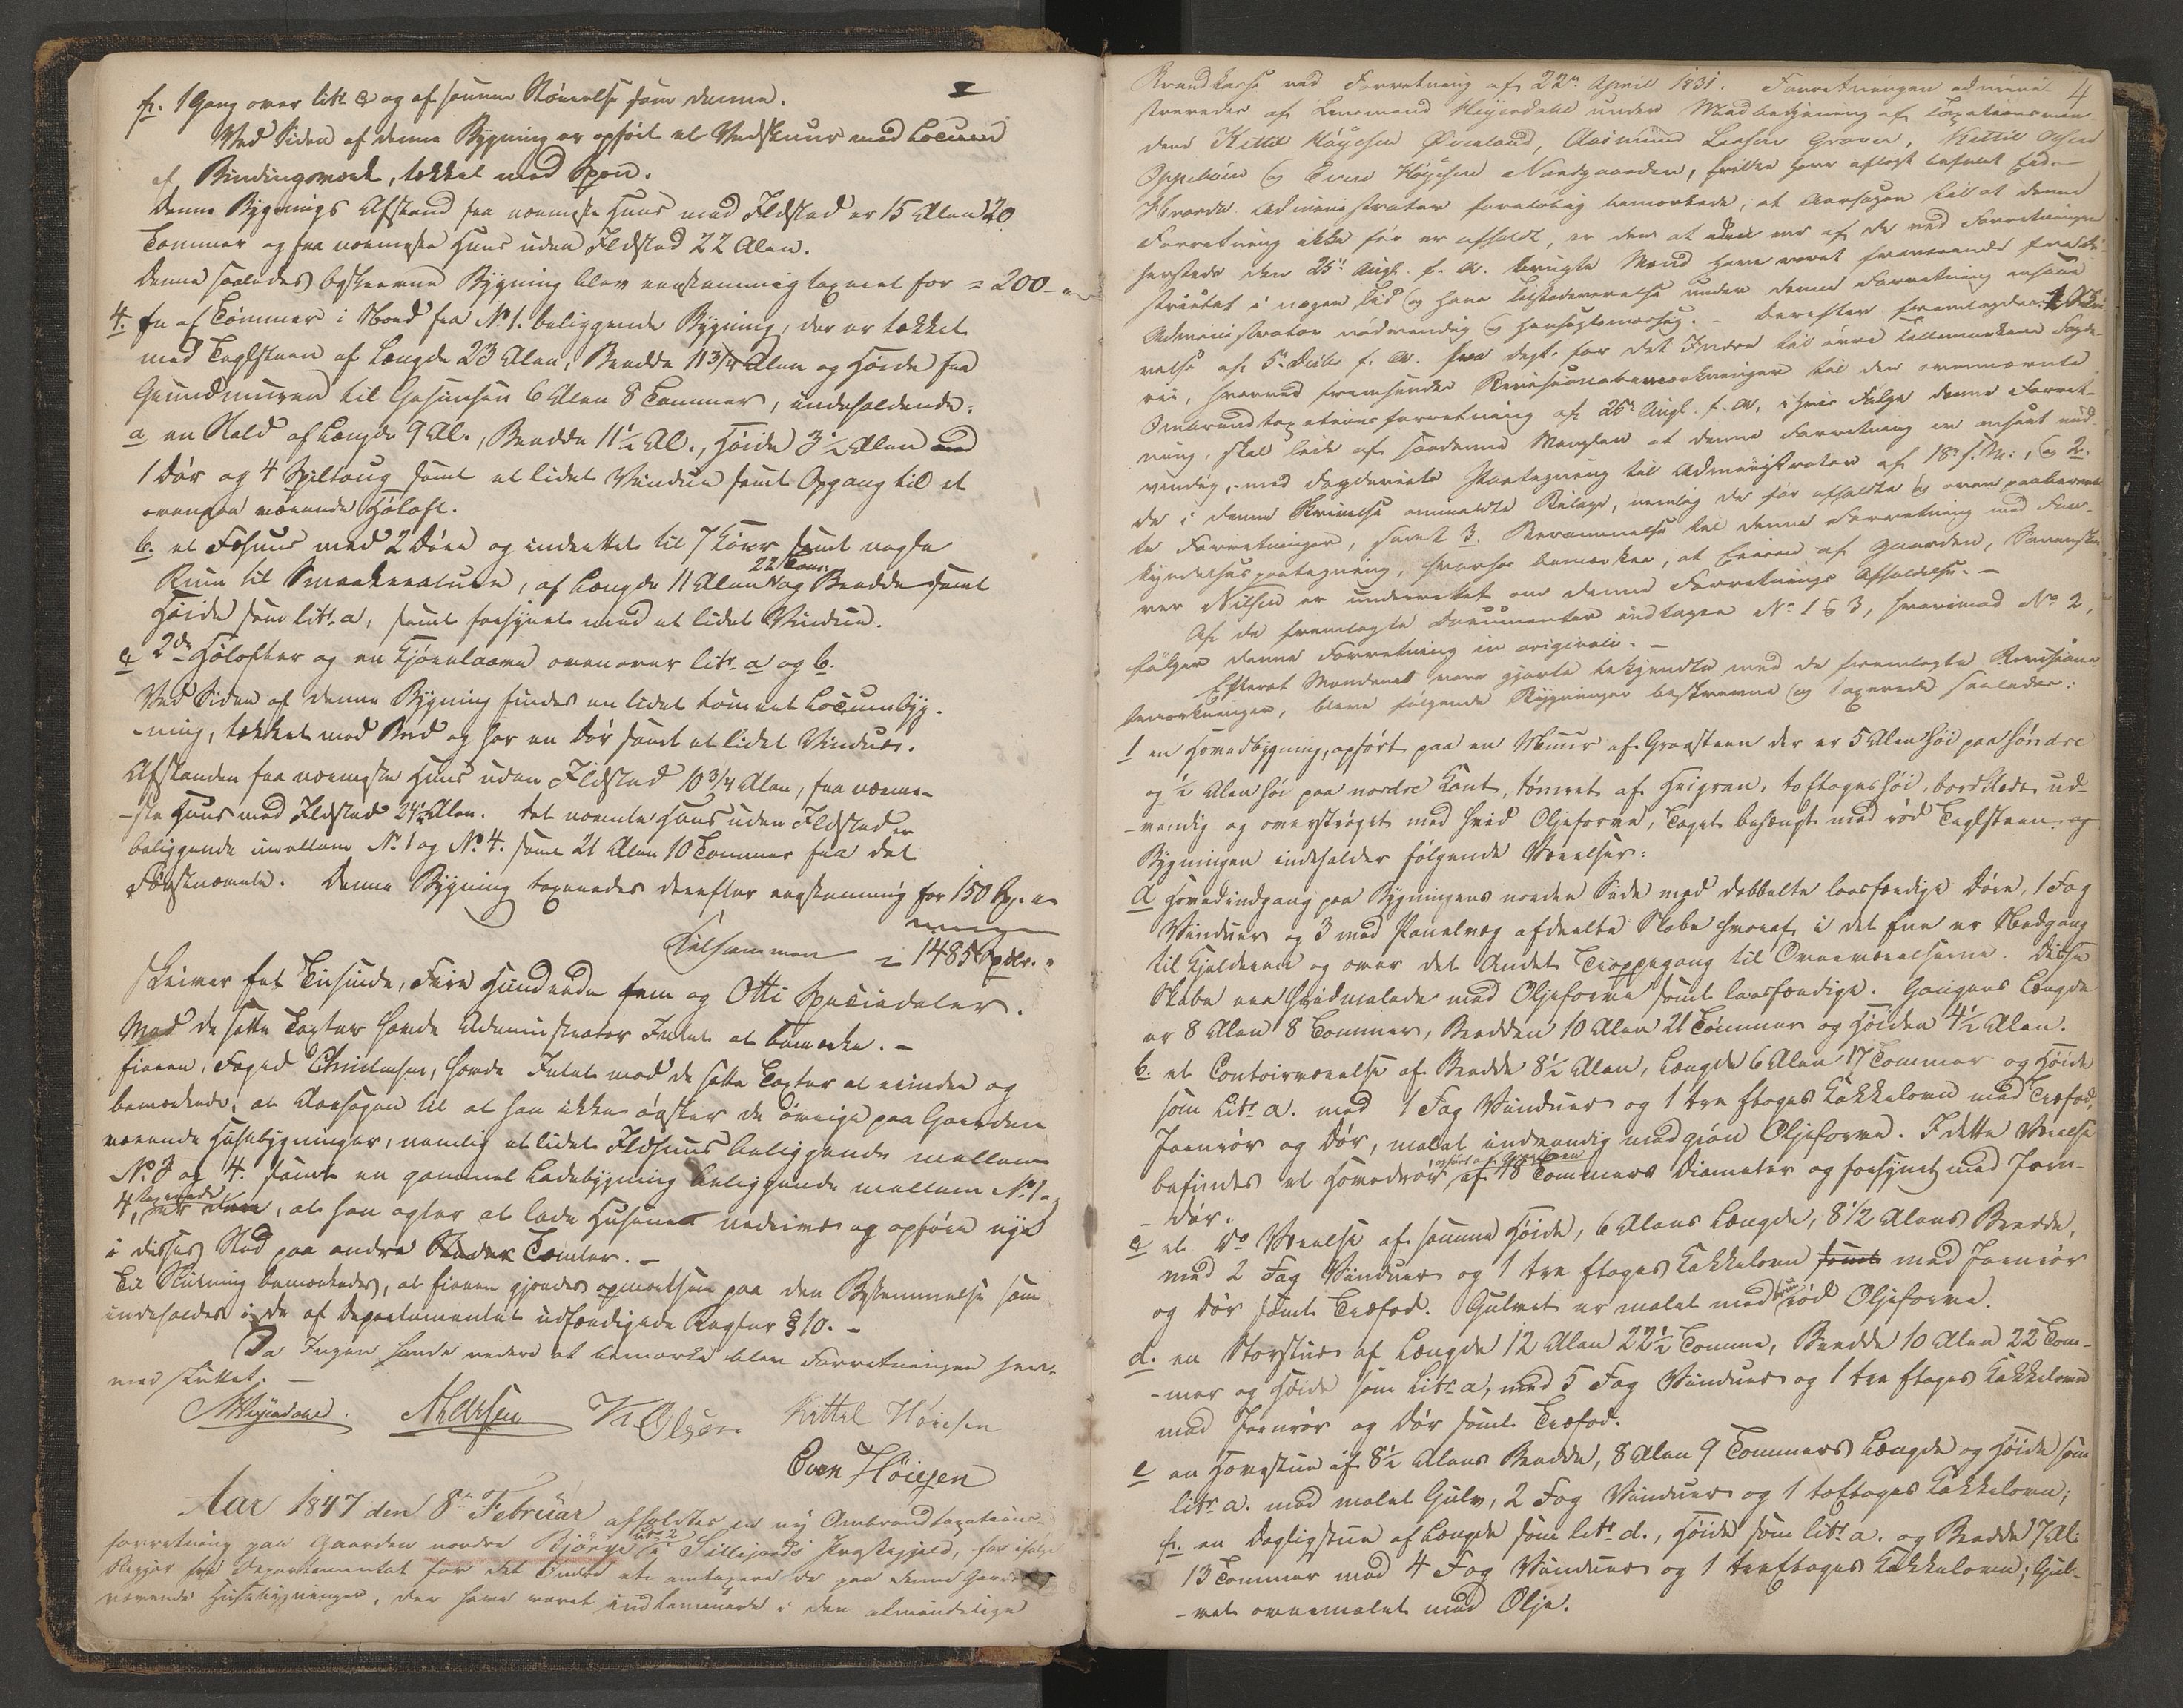 fr. 1 Gang over litr. e og af samme Størrelse som denne.
Ved Siden af denne Bygning er opført et Vedskuur med Locum
af Bindingsværk, tækket med Spon.
Denne Bygnings Afstand fra nærmeste Huus med Ildsted er 15 Alen 20
Tommer og fra nærmeste Huus uden Ildsted 22 Alen.
Denne saaledes beskrevne Bygning blev eenstemmig taxeret for = 200 - "
4. En af Tømmer i Nord fra No 1. beliggende Bygning, der er tækket
med Taglsteen af Længde 23 Alen, Bredde 11 3/4 Alen og Høide fra
Grundmuren til Gesimsen 6 Alen 8 Tommer, indeholdende:
a en Stald af Længde 9 Al., Bredde 11 1/2 Al., Høide 3 1/2 Alen med
1 Dør og 4 Spiltoug samt et lidet Vindue samt Opgang til et
ovenpaa værende Høloft.
b. et Fæhuus med 2 Døre og indrettet til 7 Kiør samt nogle
Rum til Smaakreature, af Længde 11 Alen 22 Tom: og Bredde samt
Høide som litr. a, samt forsynet med et lidet Vindue.
c 2de Høloftter og en Kjørelaave ovenover litr. a og b.
Ved Siden af denne Bygning findes en liden tømret Locumbyg-
-ning, tækket med Bord og har en Dør samt et lidet Vindue.
Afstanden fra nærmeste Huus uden Ildsted 10 3/4 Alen, fra nærme-
-ste Huus med Ildsted 24 1/2 Alen. Det nævnte Huus uden Ildsted er
beliggende imellem No 1 og No 4. samt 21 Alen 10 Tommer fra det
Førstnævnte. Denne Bygning taxeredes derefter eenstemmig for 150 Sp. "
Tilsammen = 1485 Spdlr. "
skriver Et Tusinde, Fire Hundrede fem og Otti Speciedaler.
Mod de satte Taxter havde Administrator Intet at bemærke. -
Eieren, Foged Christensen, havde Intet mod de satte Taxter at erindre og
bemærkede, at Aarsagen til at han ikke ønsker de øvrige paa Gaarden
værende Huusbygninger, nemlig et lidet Ildhuus beliggende mellem
No. 3 og 4. samt en gammel Ladebygning beliggende mellem No. 1 og
4, taxerede er den, at han agter at lade Husene nedrive og opføre nye
i disses Sted paa andre Tomter. -
Til Slutning bemærkedes, at Eieren gjordes opmærksom paa den Bestemmelse som
indeholdes i de af Departementet udfærdigede Regler § 10. -
Da Ingen havde videre at bemærke blev Forretningen her-
med sluttet. -
Heyerdahl. K Olsen Kittel Høiesen
Even Høiesen
Aar 1847 den 8de Februar afholdtes en ny Ombrandtaxations-
forretning paa Gaarden nordre Bjørge No 2 i Sillejords Præstegjeld, for ifølge
fra Departementet for det Indre at omtaxere de paa denne Gaard
værende Huusbygninger, der have været indlemmede i den almindelige
4
Brandkasse ved Forretning af 22de April 1831. Forretningen admini-
streredes af Lensmand Heyerdahl under Medbetjening af Taxationsmæn-
dene Kittel Høyesen Øverland, Aasmund Larsen Graver, Kittil Olsen
Oppebøen og Even Høyesen Nordgaarden, hvilke have aflagt befalet Eed. -
Hvorda Administrator foreløbig bemærkede, at Aarsagen til at denne
Forretning ikke før er afholdt, er den at een af de ved Forretningen
hersteds den 25de Augt. f. A. brugte Mænd have været fraværende fra Di-
strictet i nogen Tid og hans Tilstedeværelse under denne Forretning ansaae
Administrator nødvendig og hensigtsmæssig. - Derefter fremlagdes 1 Skri-
velse af 5te Decbr f. A. fra Dept. for det Indre til øvre Tellemarkens Foge-
rie, hvorved fremsendtes Revisionsbemærkninger til den ovennævnte
Ombrandtaxationsforretning af 25de Augt. f. A., i hvis Følge denne Forret-
ning skal lide af saadanne Mangler at denne Forretning er anseet nød-
vendig, med Fogderiets Paategning til Administrator af 18de s. M., og 2.
de i denne Skrivelse ommeldte Bilage, nemlig de før afholdte og oven paaberaab-
te Forretninger, samt 3. Berammelse til denne Forretning med For-
kyndelsespaategning, hvorhos bemærkes, at Eieren af Gaarden,
ver Nilsen er underrettet om denne Forretnings Afholdelse. -
Af de fremlagte Documenter indtages No 1 & 3, hvorimod No 2,
følger denne Forretning in originali. -
Efterat Mændene vare gjorte bekjendte med de fremlagte Revisions-
bemærkninger, bleve følgende Bygninger beskrevne og taxerede saaledes:
1 en Hovedbygning, opført paa en Muur af Graasteen der er 5 Alen høi paa søndre
og 1/2 Alen høi paa nordre Kant, tømret af Hvigran, toetages høi, bordklædt ud-
-vendig og overstrøget med hvid Oljefarve, Taget behængt med rød Taglsteen og
Bygningen indeholder følgende Værelser:
a Hovedindgang paa Bygningens nordre Side med dobbelte laasfærdige Døre, 1 Fag
Vinduer og 3 med Panelvæg afdeelte Skabe hvoraf i det Ene er Nedgang
til Kjelderne og over det Andet Trappegang til Overværelserne. Disse
Skabe ere hvidmalede med Oljefarve samt laasfærdige. Gangens Længde
er 8 Alen 8 Tommer, Bredden 10 Alen 21 Tommer og Høiden 4 1/2 Alen.
b. et Contoirværelse af Bredde 8 1/2 Alen, Længde 6 Alen 17 Tommer og Høide
som Litr. a. med 1 Fag Vinduer og 1 tre Etages Kakkelovn med Træfod,
Jernrør og Dør, malet indvendig med grøn Oljefarve. I dette Værelse
befindes et Hovedrør opført af Graasteen af 18 Tommers Diameter og forsynet med Jern-
-dør.
c et do Værelse af samme Høide, 6 Alens Længde, 8 1/2 Alens Bredde,
med 2 Fag Vinduer og 1 tre Etages Kakkelovn samt med Jernrør
og Dør samt Træfod. Gulvet er malet med brun rød Oljefarve.
d. en Storstue af Længde 12 Alen 22 1/2 Tomme, Bredde 10 Alen 22 Tom-
-mer og Høide som Litr a, med 5 Fag Vinduer og 1 tre Etages Kakkelovn
med Jernrør og Dør samt Træfod.
e en Havestue af 8 1/2 Alens Bredde, 8 Alen 9 Tommers Længde og Høide som
litr a. med malet Gulv, 2 Fag Vinduer og 1 toetages Kakkelovn;
fr. en Dagligstue af Længde som litr. d., Høide som litr. a. og Bredde 7 Al:
13 Tommer med 4 Fag Vinduer og 1 treetages Kakkelovn; Gul-
-vet overmalet med Olje.